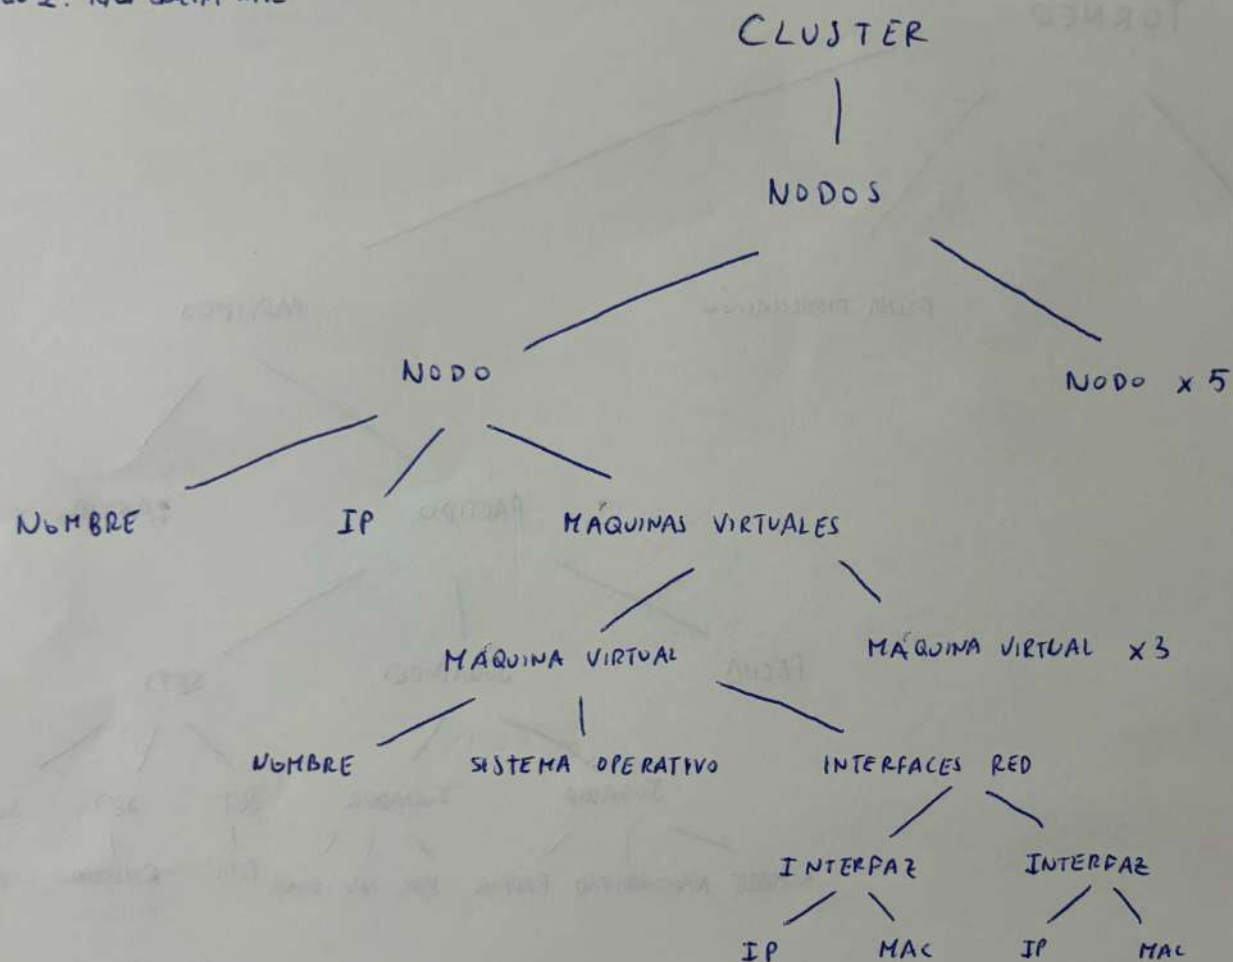 CLUSTER
NODOS
NODO
NODO x 5
NOMBRE IP MÁQUINAS VIRTUALES
MÁQUINA VIRTUAL
MÁQUINA VIRTUAL x3
NOMBRE SISTEMA OPERATIVO INTERFACES RED
INTERFAZ INTERFAZ
IP MAC IP MAC